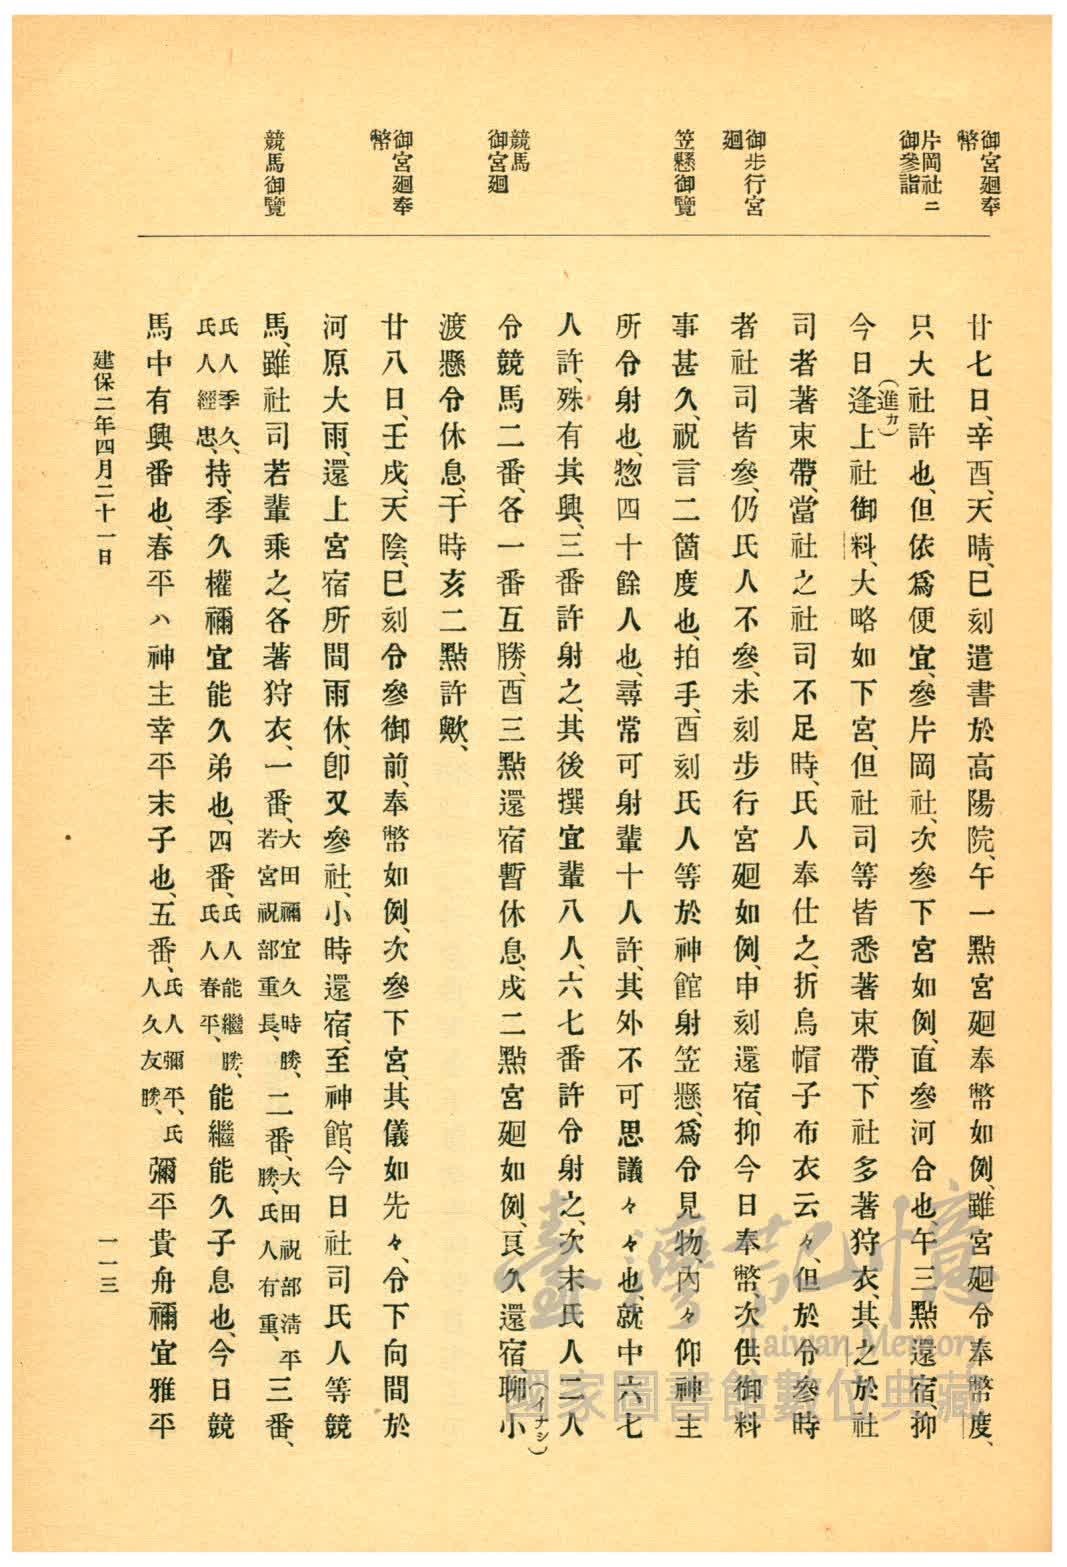 御宮廻奉
幣
片岡社ニ
御參詣
御步行宮
廻
笠懸御覽
競馬
御宮廻
御宮廻奉
幣
競馬御覽
廿七日、辛酉、天晴、巳刻遣書於高陽院、午一點宮廻奉幣如例、雖宮廻令奉幣度、
只大社許也、但依爲便宜、參片岡社、次參下宮如例、直參河合也、午三點還宿、抑
今日逢(進カ)上社御料、大略如下宮、但社司等皆悉著束帶、下社多著狩衣、其之於社
司者著束帶、當社之社司不足時、氏人奉仕之、折烏帽子布衣云々、但於令參時
者社司皆參、仍氏人不參、未刻步行宮廻如例、申刻還宿、抑今日奉幣、次供御料
事甚久、祝言二箇度也、拍手、酉刻氏人等於神館射笠懸、爲令見物、內々仰神主
所令射也、惣四十餘人也、尋常可射輩十人許、其外不可思議々々也就中六七
人許、殊有其興、三番許射之、其後撰宜輩八人、六七番許令射之、次末氏人二人
令競馬二番、各一番互勝、酉三點還宿暫休息、戌二點宮廻如例、良久還宿、聊小(イナシ)
渡懸令休息、于時亥二點許歟、
廿八日、壬戌、天陰、巳刻令參御前、奉幣如例、次參下宮、其儀如先々、令下向間於
河原大雨、還上宮宿所間雨休、卽又參社、小時還宿、至神館、今日社司氏人等競
馬、雖社司若輩乘之、各著狩衣、一番、大田禰宜久時勝、若宮祝部重長、二番、大田祝部淸平勝、氏人有重、三番、
氏人季久、氏人經忠、持、季久權禰宜能久弟也、四番、氏人能繼勝、氏人春平、能繼能久子息也、今日競
馬中有興番也、春平ハ神主幸平末子也、五番、氏人彌平、氏人久友勝、彌平貴舟禰宜雅平
建保二年四月二十一日
一一三
臺灣記憶
Taiwan Memory
國家圖書館數位典藏